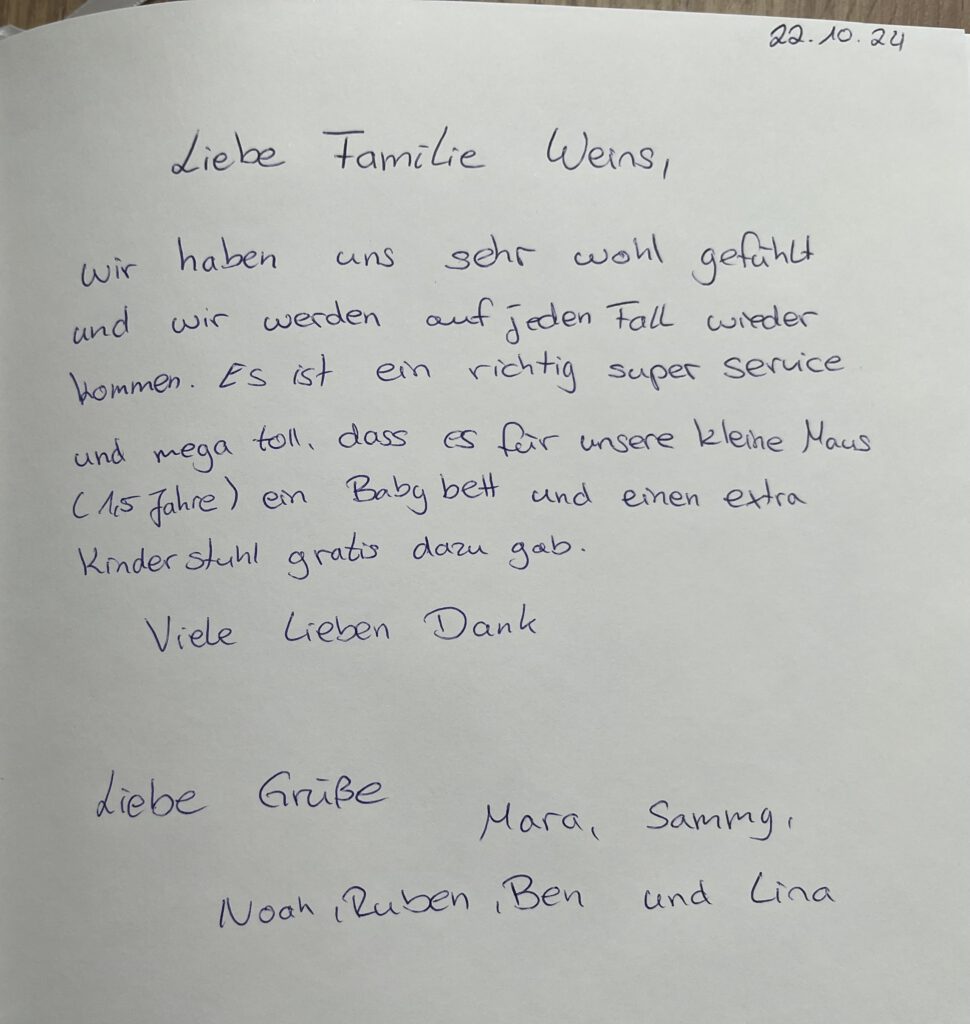 22.10.24
Liebe Familie Weins,
wir haben uns sehr wohl gefühlt
und wir werden auf jeden Fall wieder
kommen. Es ist ein richtig super service
und mega toll, dass es für unsere kleine Maus
(1,5 Jahre) ein Babybett und einen extra
Kinderstuhl gratis dazu gab.
Viele Lieben Dank
Liebe Grüße
Mara, Sammy,
Noah, Ruben, Ben und Lina